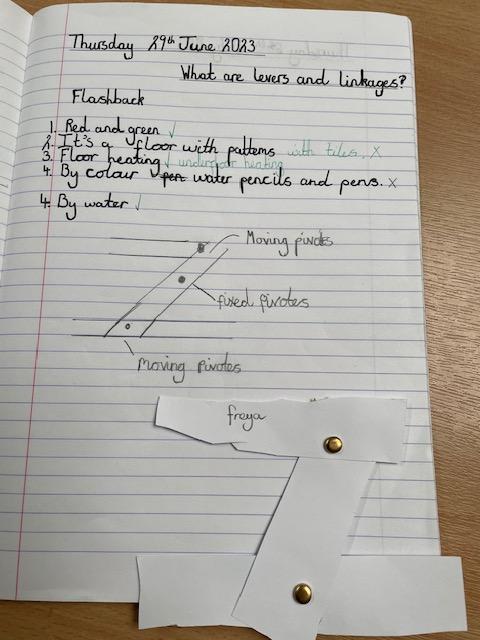 Thursday 29th June 2023
What are levers and linkages?
Flashback
1. Red and green ✓
2. It's a floor with patterns with tiles. x
3. Floor heating ✓ underfloor heating
4. By colour pen water pencils and pens. x
4. By water ✓
Moving pivots
fixed pivotes
Moving pivotes
freya